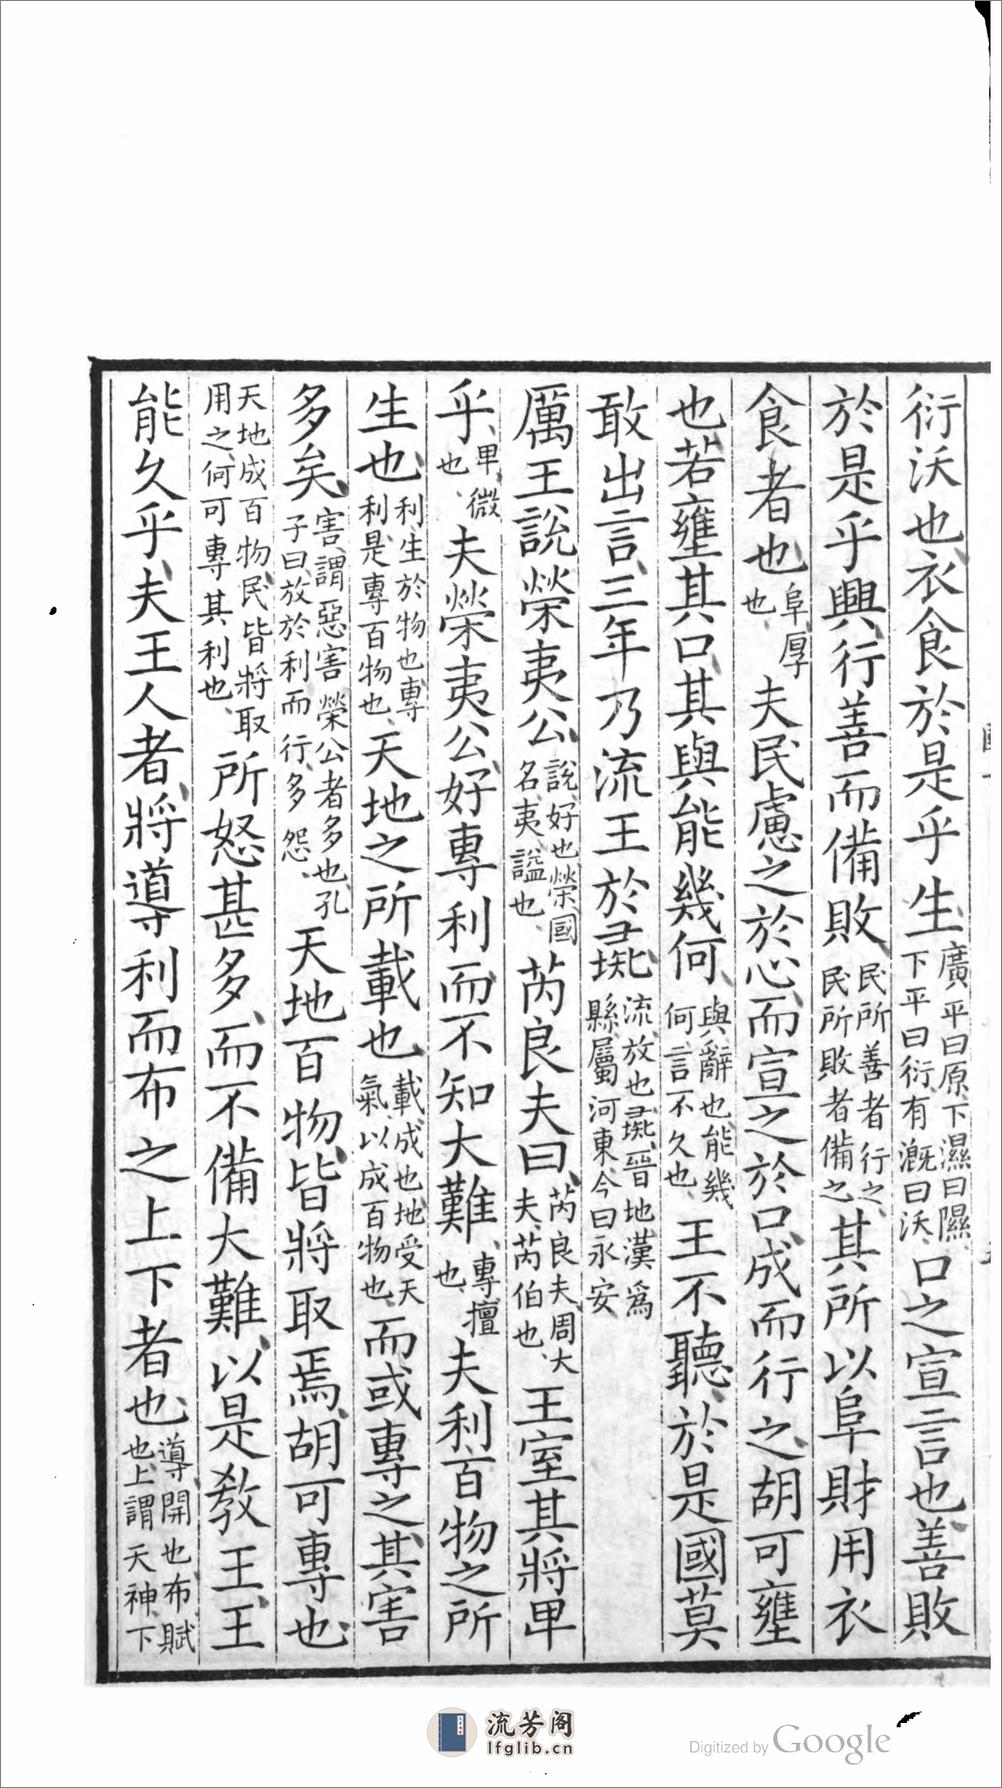 衍沃也、衣食於是乎生、廣平曰原、下濕曰隰、下平曰衍、有溉曰沃、口之宣言也、善敗
於是乎興、行善而備敗、民所善者行之、民所敗者備之、其所以阜財用衣
食者也、阜、厚也、夫民慮之於心、而宣之於口、成而行之、胡可壅
也、若壅其口、其與能幾何、與、辭也、能幾何、言不久也、王不聽、於是國莫
敢出言、三年乃流王於彘、流、放也、彘、晉地、漢爲縣、屬河東、今曰永安
厲王說榮夷公、說、好也、榮、國名、夷、謚也、芮良夫曰、芮良夫、周大夫、芮伯也、王室其將卑
乎、卑、微也、夫榮夷公、好專利而不知大難、專、擅也、夫利、百物之所
生也、利生於物也、專利是專百物也、天地之所載也、載、成也、地受天氣、以成百物也、而或專之、其害
多矣、害、謂惡害榮公者多也、孔子曰、放於利而行、多怨、天地百物、皆將取焉、胡可專也、
天地成百物、民皆將取用之、何可專其利也、所怒甚多、而不備大難、以是敎王、王
能久乎、夫王人者、將導利而布之上下者也、導、開也、布、賦也、上謂天神、下
流芳阁
lfglib.cn
Digitized by Google